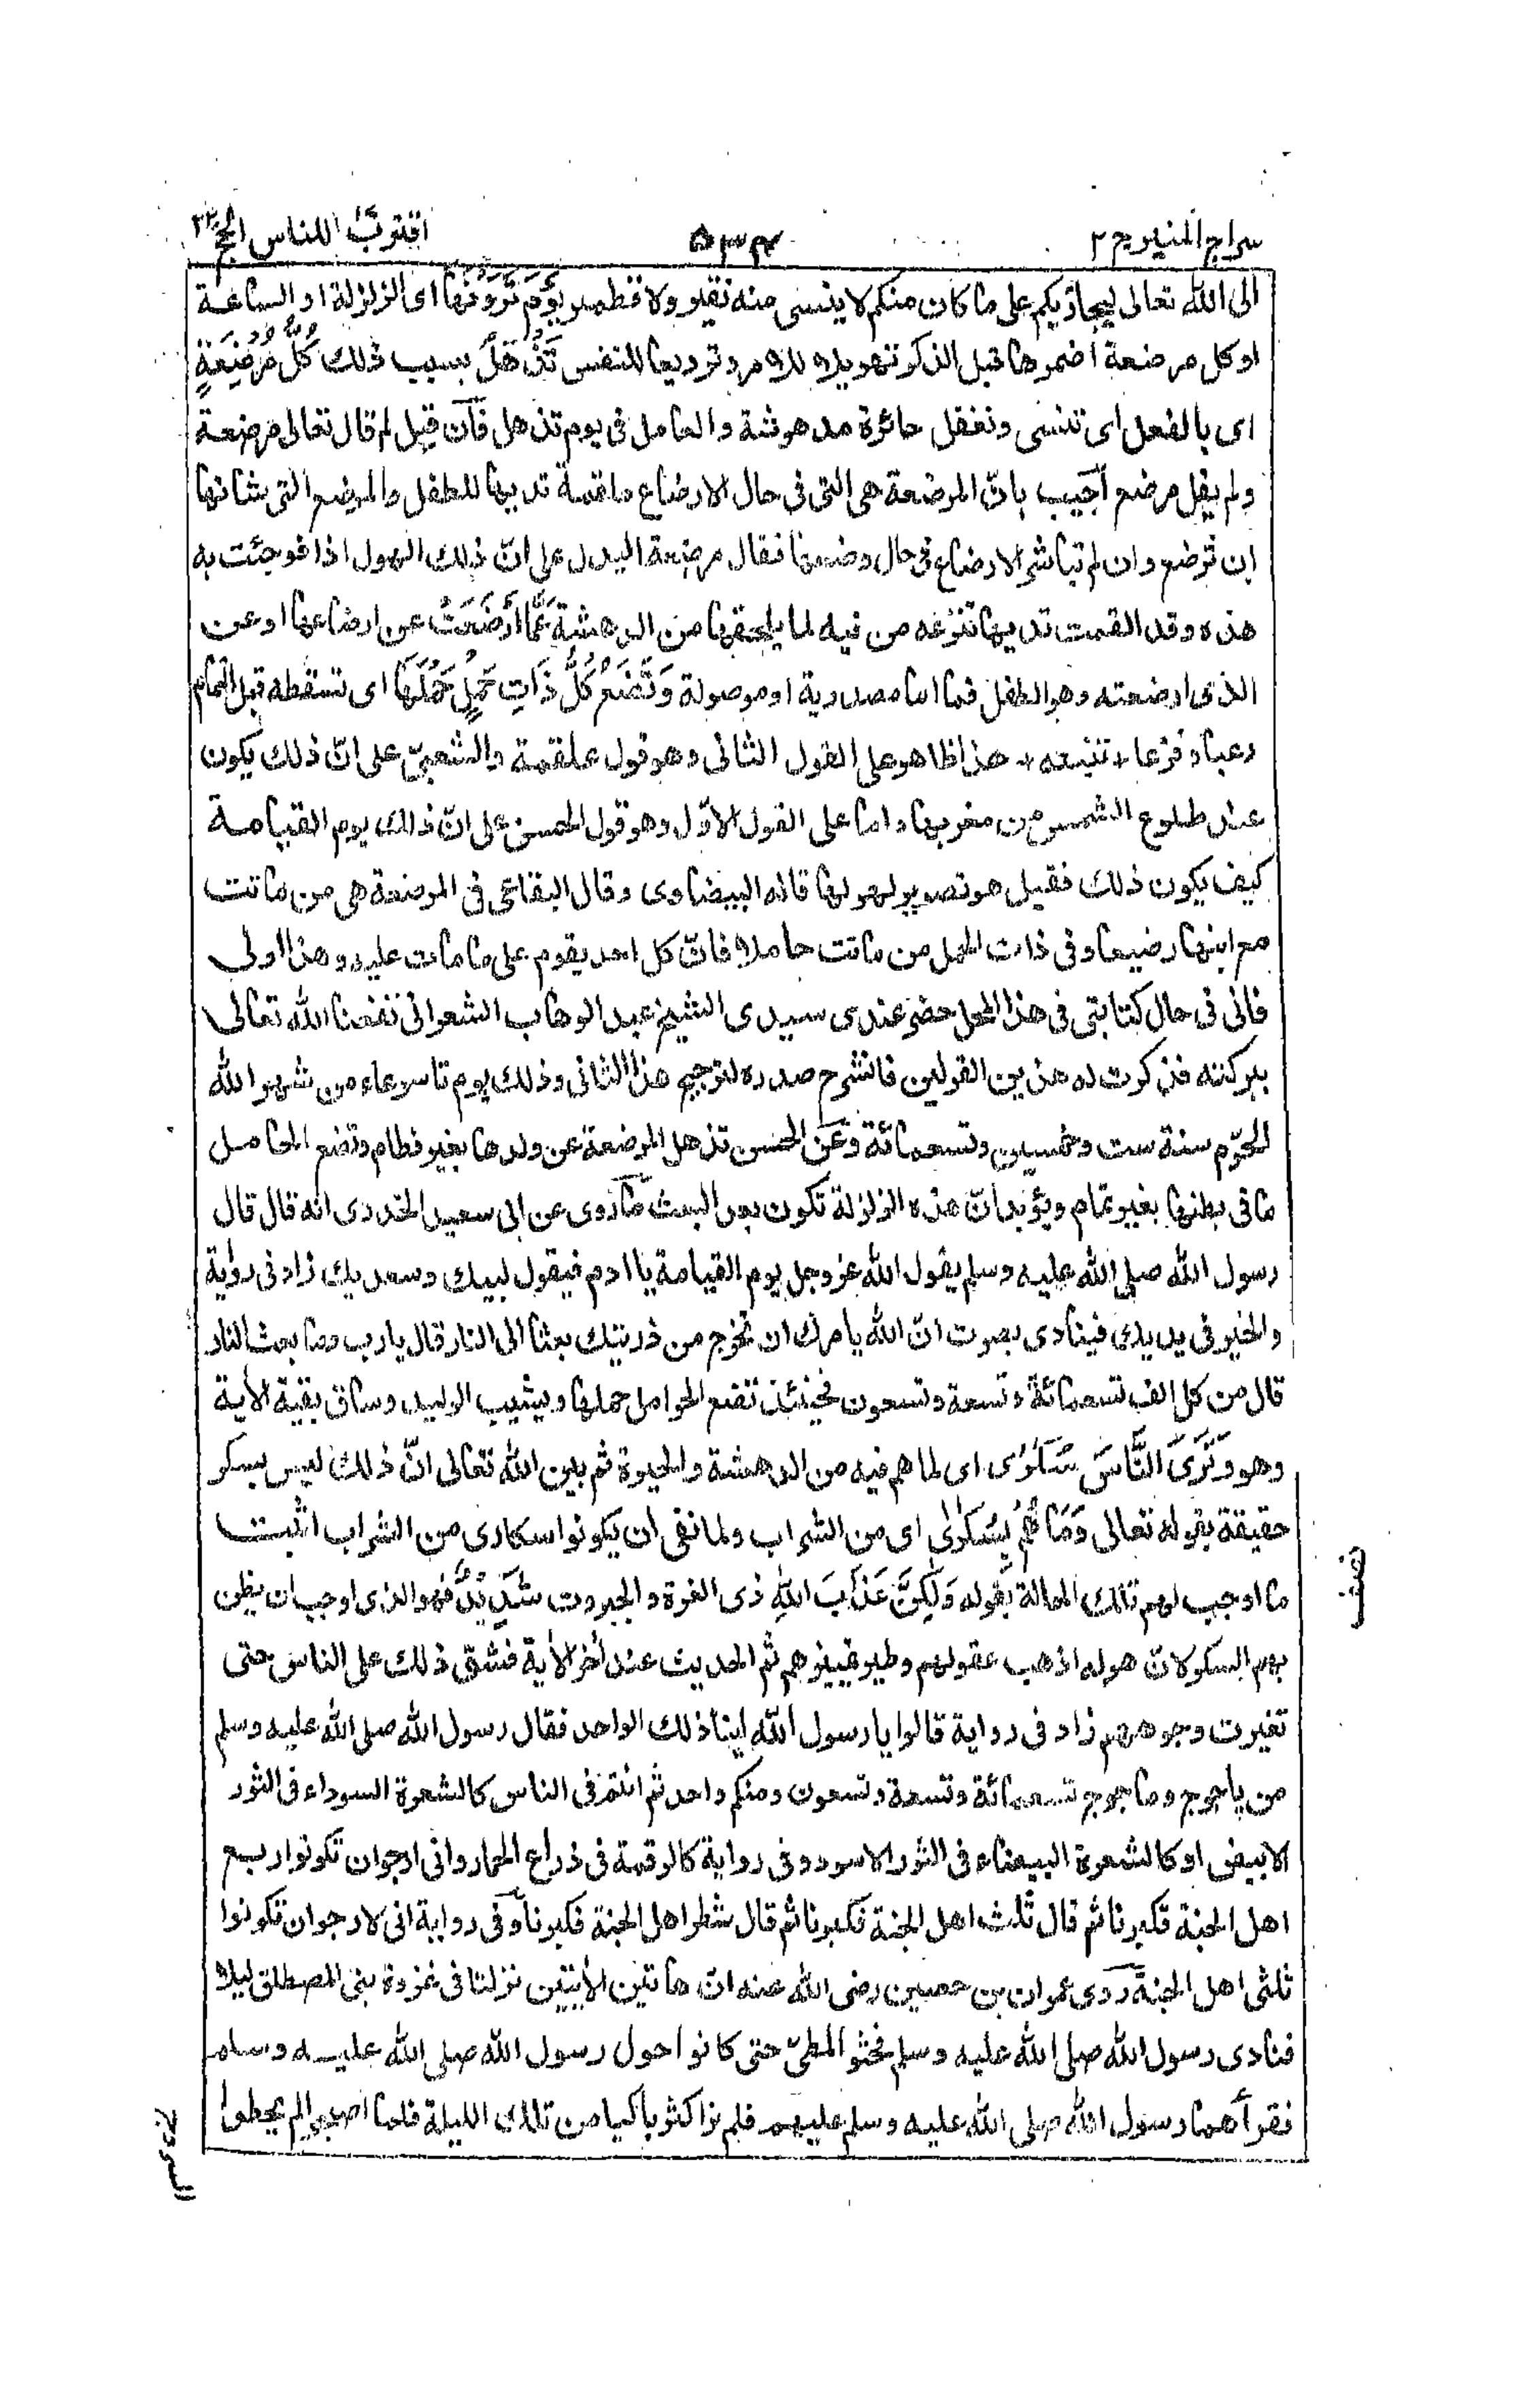 سراج المنيرج ٢
٥٣٤
اقترب للناس الحج ٢٢
الى الله تعالى ليجازيكم على ما كان منكم لا ينسى منه نقير ولا قطمير يَوْمَ تَرَوْنَهَا اى الزلزلة او الساعة
او كل مرضعة اضمرها قبل الذكر تهويلا للامر وترويعا للنفس تَذْهَلُ بسبب ذلك كُلُّ مُرْضِعَةٍ
اى بالفعل اى تنسى وتغفل حائرة مدهوشة والعامل فى يوم تذهل فان قيل لم قال تعالى مرضعة
ولم يقل مرضع اجيب بانّ المرضعة هى التى فى حال الارضاع ملقمة ثديها للطفل والمرضع التى شانها
ان ترضع وان لم تباشر الارضاع فى حال وضعها فقال مرضعة ليدل على انّ ذلك الهول اذا فوجئت به
هذه وقد القمت ثديها تنزعه من فيه لما يلحقها من الدهشة عَمَّا أَرْضَعَتْ عن ارضاعها او عن
الذى ارضعته وهو الطفل فما اما مصدرية او موصولة وَتَضَعُ كُلُّ ذَاتِ حَمْلٍ حَمْلَهَا اى تسقطه قبل التمام
رعبا وفزعا * تنبيه * هذا ظاهر على القول الثانى وهو قول علقمة والشعبىّ على انّ ذلك يكون
عند طلوع الشمس من مغربها واما على القول الاوّل وهو قول الحسن على انّ ذلك يوم القيامة
كيف يكون ذلك فقيل هو تصوير لهولها قاله البيضاوى وقال البقاعى فى المرضعة هى من ماتت
مع ابنها رضيعا وفى ذات الحمل من ماتت حاملا فانّ كل احد يقوم على ما مات عليه وهذا اولى
فانى فى حال كتابتى فى هذا المحل حضر عندى سيدى الشيخ عبد الوهاب الشعرانى نفعنا الله تعالى
ببركته فذكرت له هذين القولين فانشرح صدره لترجيح هذا الثانى وذلك يوم تاسوعاء من شهر الله
المحرّم سنة ست وخمسين وتسعمائة وعن الحسن تذهل المرضعة عن ولدها بغير فطام وتضع الحامل
ما فى بطنها بغير تمام ويؤيد انّ هذه الزلزلة تكون بعد البعث ما روى عن ابى سعيد الخدرى انه قال قال
رسول الله صلى الله عليه وسلم يقول الله عز وجل يوم القيامة يا ادم فيقول لبيك وسعديك زاد فى رواية
والخير فى يديك فينادى بصوت انّ الله يامرك ان تخرج من ذريتك بعثا الى النار قال يارب وما بعث النار
قال من كل الف تسعمائة وتسعة وتسعون فحينئذ تضع الحوامل حملها ويشيب الوليد وساق بقية الأية
وهو وَتَرَى النَّاسَ سُكَارٰى اى لما هم فيه من الدهشة والحيرة ثم بين الله تعالى انّ ذلك ليس بسكر
حقيقة بقوله تعالى وَمَا هُمْ بِسُكَارٰى اى من الشراب ولما نفى ان يكونوا سكارى من الشراب اثبت
ما اوجب لهم تلك الحالة بقوله وَلٰكِنَّ عَذَابَ اللهِ ذى العزة والجبروت شَدِيْدٌ فهو الذى اوجب ان يظن
بهم السكر لانّ هوله اذهب عقولهم وطير تمييزهم ثم الحديث عند أخر الأية فشق ذلك على الناس حتى
تغيرت وجوههم زاد فى رواية قالوا يا رسول الله اينا ذلك الواحد فقال رسول الله صلى الله عليه وسلم
من ياجوج وماجوج تسعمائة وتسعة وتسعون ومنكم واحد ثم انتم فى الناس كالشعرة السوداء فى الثور
الابيض او كالشعرة البيضاء فى الثور الاسود وفى رواية كالرقمة فى ذراع الحمار وانى ارجوان تكونوا ربع
اهل الجنة فكبرنا ثم قال ثلث اهل الجنة فكبرنا ثم قال شطر اهل الجنة فكبرنا وفى رواية انى لارجوان تكونوا
ثلثى اهل الجنة روى عمران بن حصين رضى الله عنه انّ هاتين الأيتين نزلتا فى غزوة بنى المصطلق ليلا
فنادى رسول الله صلى الله عليه وسلم فحثو المطىّ حتى كانوا حول رسول الله صلى الله عليه وسلم
فقرأهما رسول الله صلى الله عليه وسلم عليهم فلم نر اكثر باكيا من تلك الليلة فلما اصبحوا لم يحطوا
نصف
السروج